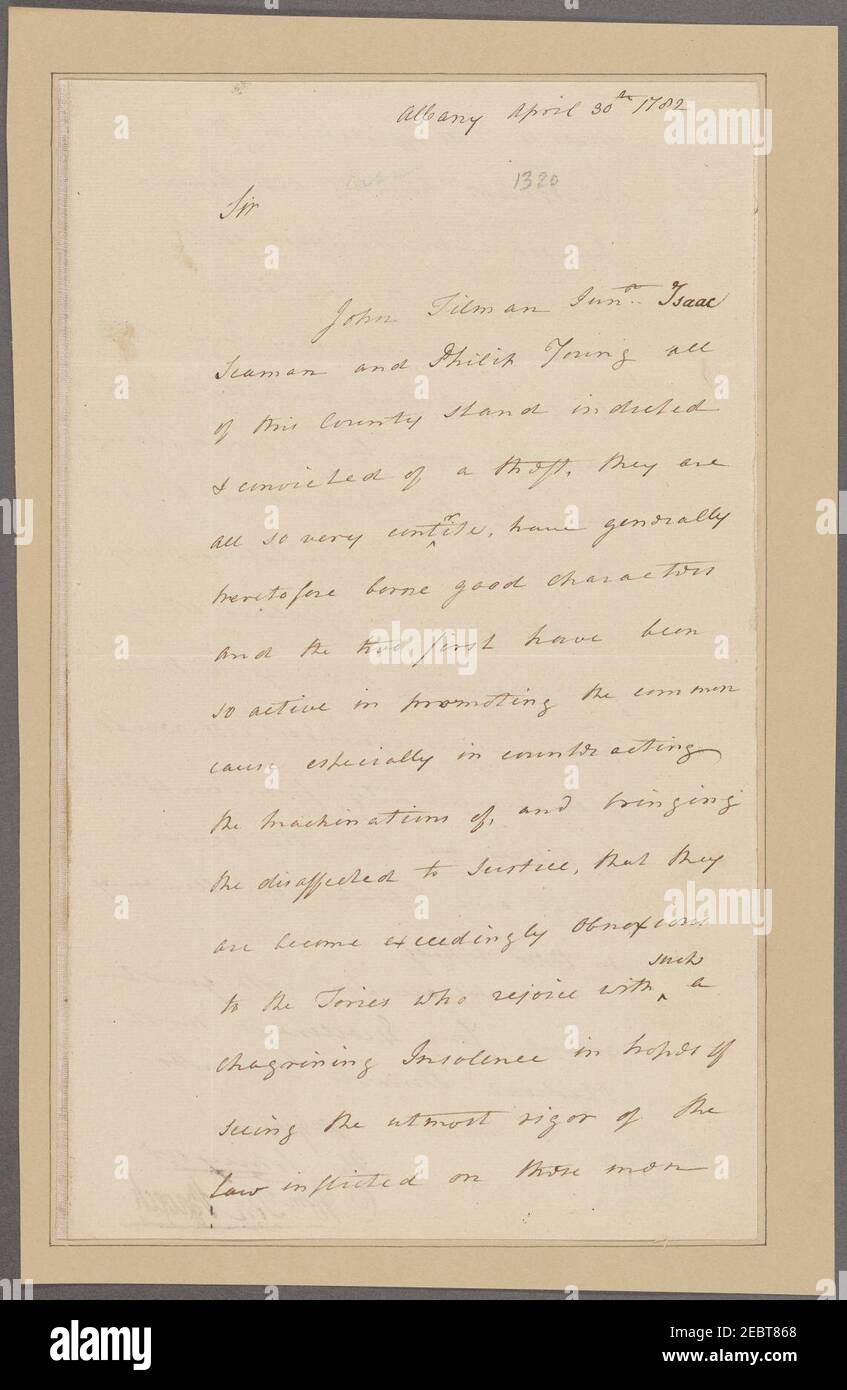 Albany April 30th 1782
1320
Sir
John Tilman Junr. Isaac
Seaman and Philip Young all
of this County stand indicted
& convicted of a theft, they are
all so very contrite, have generally
heretofore borne good characters
and the two first have been
so active in promoting the common
cause especially in counteracting
the machinations of, and bringing
the disaffected to Justice, that they
are become exceedingly obnoxious
to the Tories who rejoice with such a
chagrining Insolence in hopes of
seeing the utmost rigor of the
law inflicted on those men
alamy
Image ID: 2EBT868
www.alamy.com